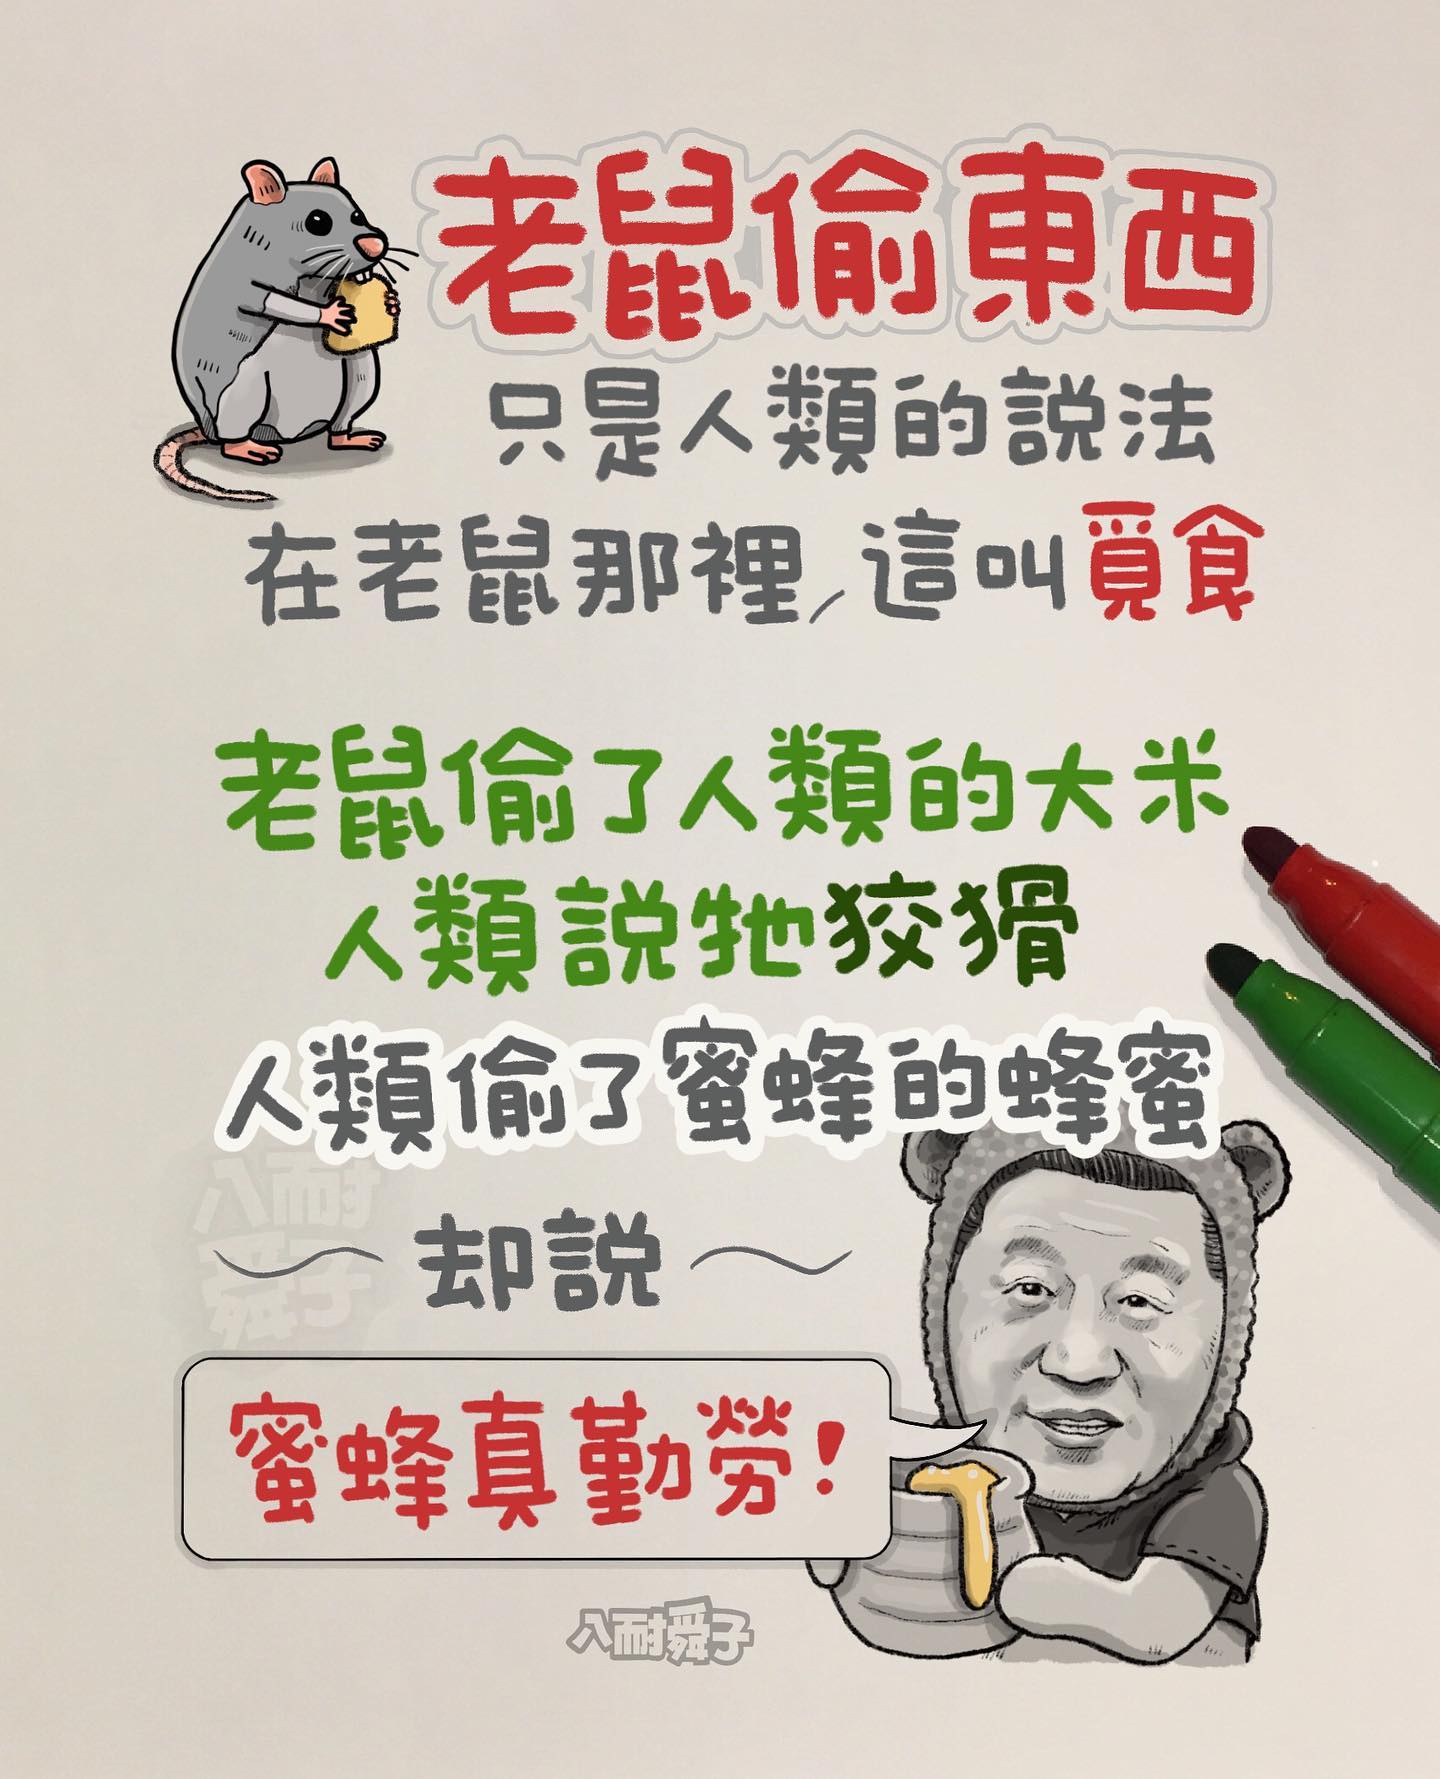 老鼠偷東西
只是人類的説法
在老鼠那裡,這叫覓食
老鼠偷了人類的大米
人類説牠狡猾
人類偷了蜜蜂的蜂蜜
八耐
舜子
却説
蜜蜂真勤勞!
八耐舜子